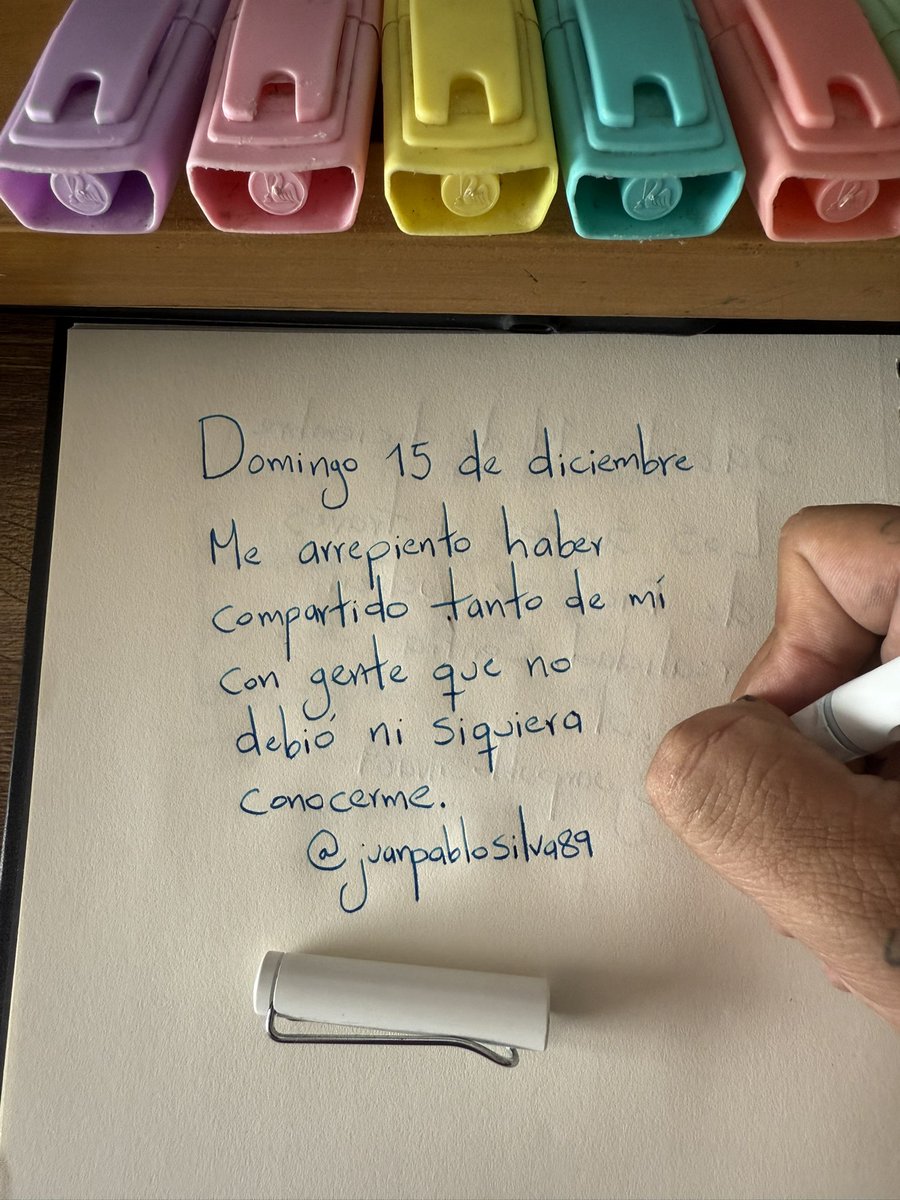 Domingo 15 de diciembre
Me arrepiento haber
compartido tanto de mí
con gente que no
debió ni siquiera
conocerme.
@juanpablosilva89